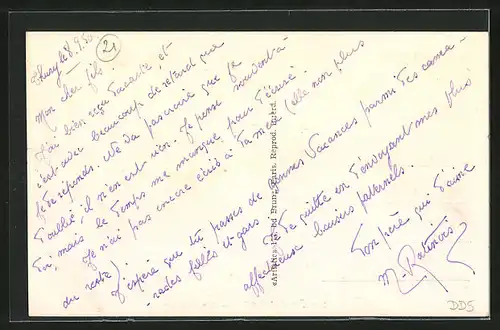 8.9.50.
21
Mon cher fils.
J'ai bien reçu ta carte, et
c'est avec beaucoup de retard que
je te réponds. Ne va pas croire que je
t'oublie: il n'en est rien. Je pense souvent à
toi; mais le temps me manque pour t'écrire.
Je n'ai pas encore écrit à ta mère (elle non plus
du reste) J'espère que tu passes de bonnes vacances parmi tes cama-
rades filles et gars. Je te quitte en t'envoyant mes plus
affectueux baisers paternels.
Ton père qui t'aime
Paris. Reprod. Interd.
DD5